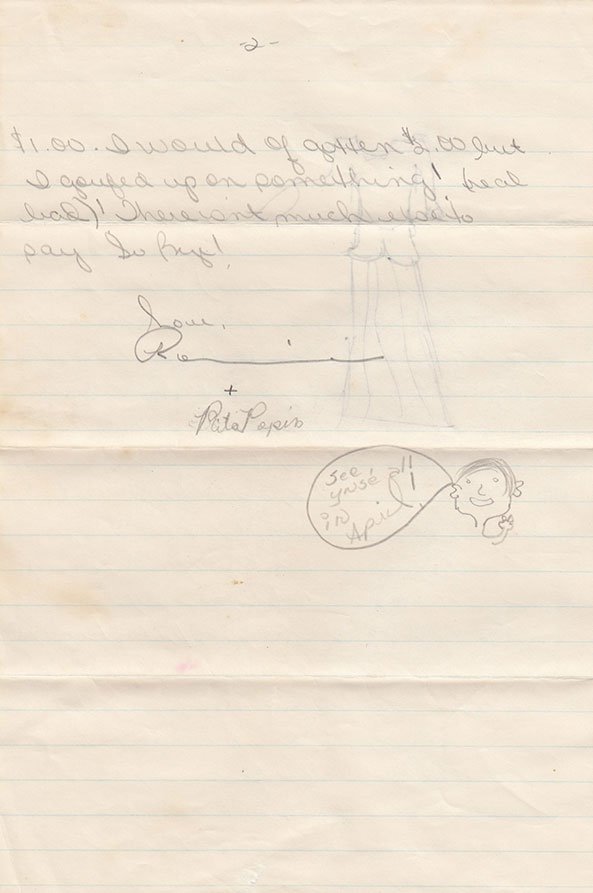 -2-
$1.00. I would of gotten $2.00 but
I goufed up on something! (real
bad)! There isnt much else to
say So Bye!
Love,
+
Rita Pepin
See
in
April!!